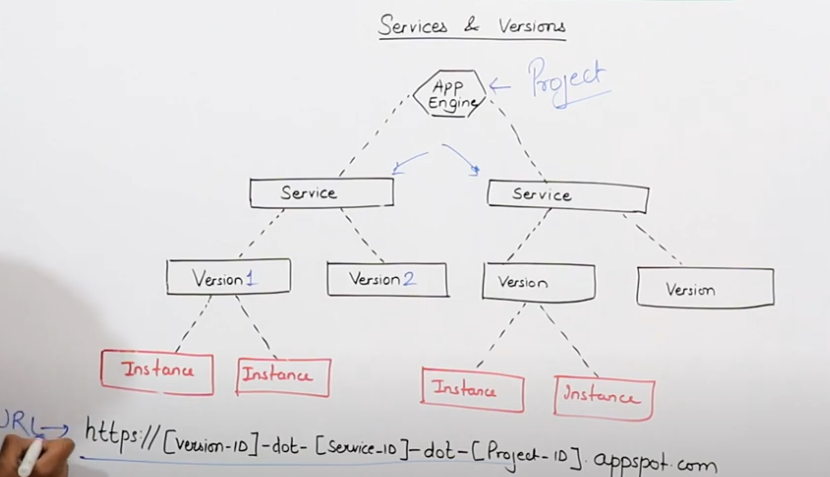 Services & Versions
App
Engine
← Project
Service
Service
Version 1
Version 2
Version
Version
Instance
Instance
Instance
Instance
URL →
https://[Version-ID]-dot-[Service-ID]-dot-[Project-ID].appspot.com